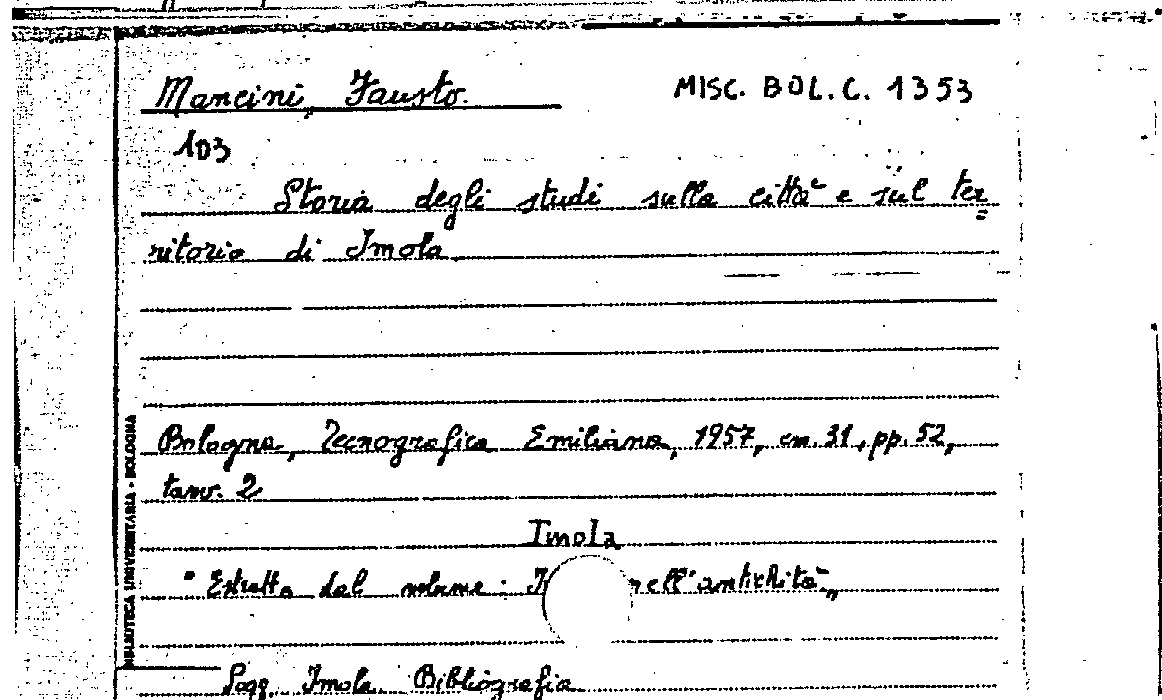 Mancini, Fausto. MISC. BOL. C. 1353
103
Storia degli studi sulla città e sul ter=
ritorio di Imola
Bologna, Tecnografica Emiliana, 1957, cm. 31, pp. 52,
tavv. 2
Imola
"Estratto dal volume: nell'antichità"
Sogg. Imola Bibliografia
BIBLIOTECA UNIVERSITARIA - BOLOGNA